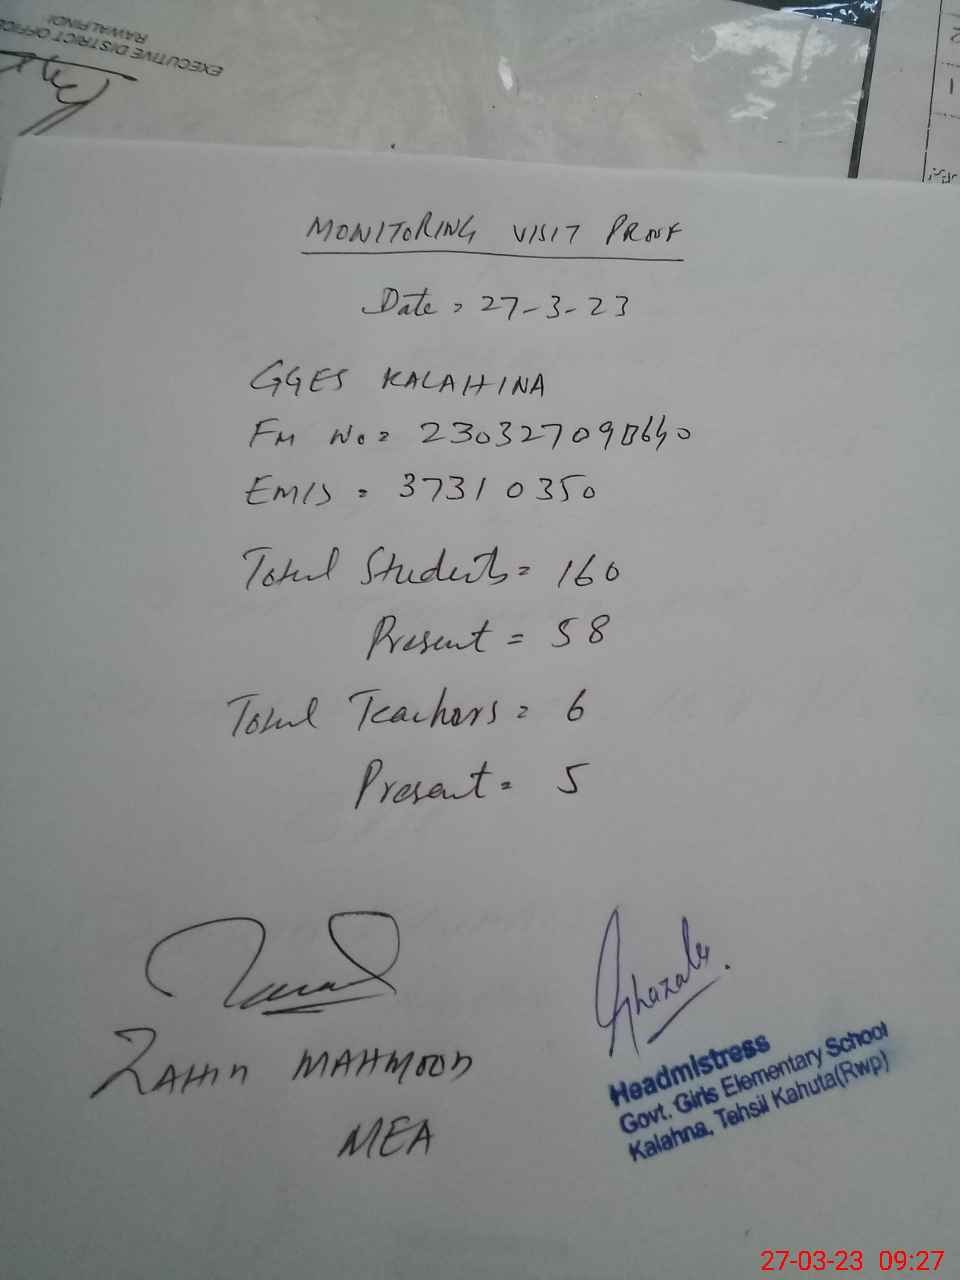 EXECUTIVE DISTRICT OFFICE
RAWALPINDI
MONITORING VISIT PROOF
Date = 27-3-23
GGES KALAHNA
Fm No = 
EMIS = 37310350
Total Students = 160
Present = 58
Total Teachers = 6
Present = 5
MAHMOOD
MEA
Ghazala
Headmistress
Govt. Girls Elementary School
Kalahna, Tehsil Kahuta(Rwp)
27-03-23 09:27